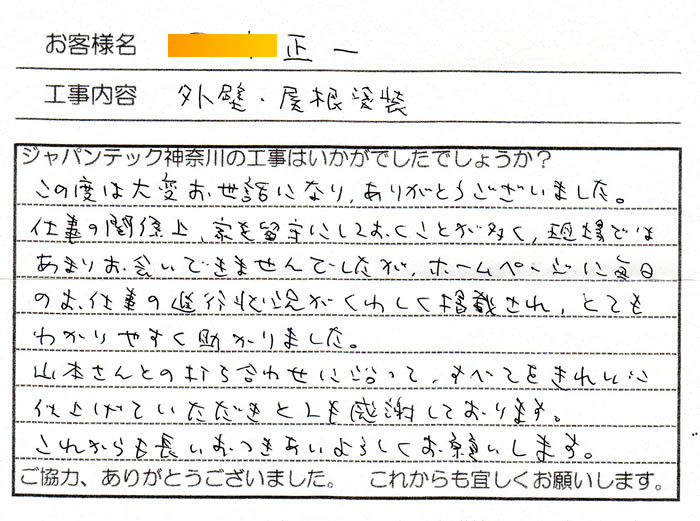 お客様名 正一
工事内容 外壁・屋根塗装
ジャパンテック神奈川の工事はいかがでしたでしょうか？
この度は大変お世話になり、ありがとうございました。
仕事の関係上、家を留守にしておくことが多く、現場では
あまりお会いできませんでしたが、ホームページに毎日
のお仕事の進行状況がくわしく掲載され、とても
わかりやすく助かりました。
山本さんとの打ち合わせに沿って、すべてをきれいに
仕上げていただきとても感謝しております。
これからも長いおつきあいよろしくお願いします。
ご協力、ありがとうございました。 これからも宜しくお願いします。